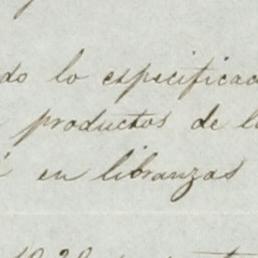 do lo especificac
productos de l
en libranzas